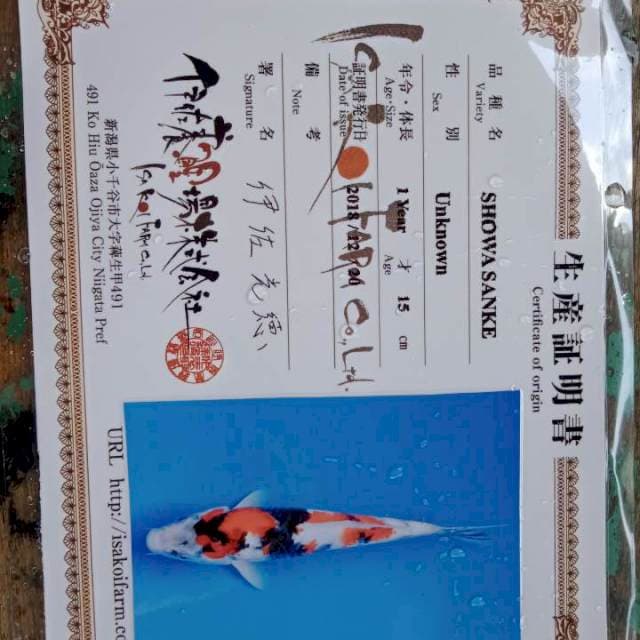 生産証明書
Certificate of origin
品種名 SHOWA SANKE
Variety
性別 Unknown
Sex
年令・体長 1 Year 才 15 cm
Age Size Age
証明書発行日
Date of Issue
備考
Note
署名 伊佐光徳
Signature
Isa Koi Farm Co., Ltd.
新潟県小千谷市大字蘭生甲491
491 Ko Hiu Oaza Ojiya City Niigata Pref
URL http://isakoifarm.co